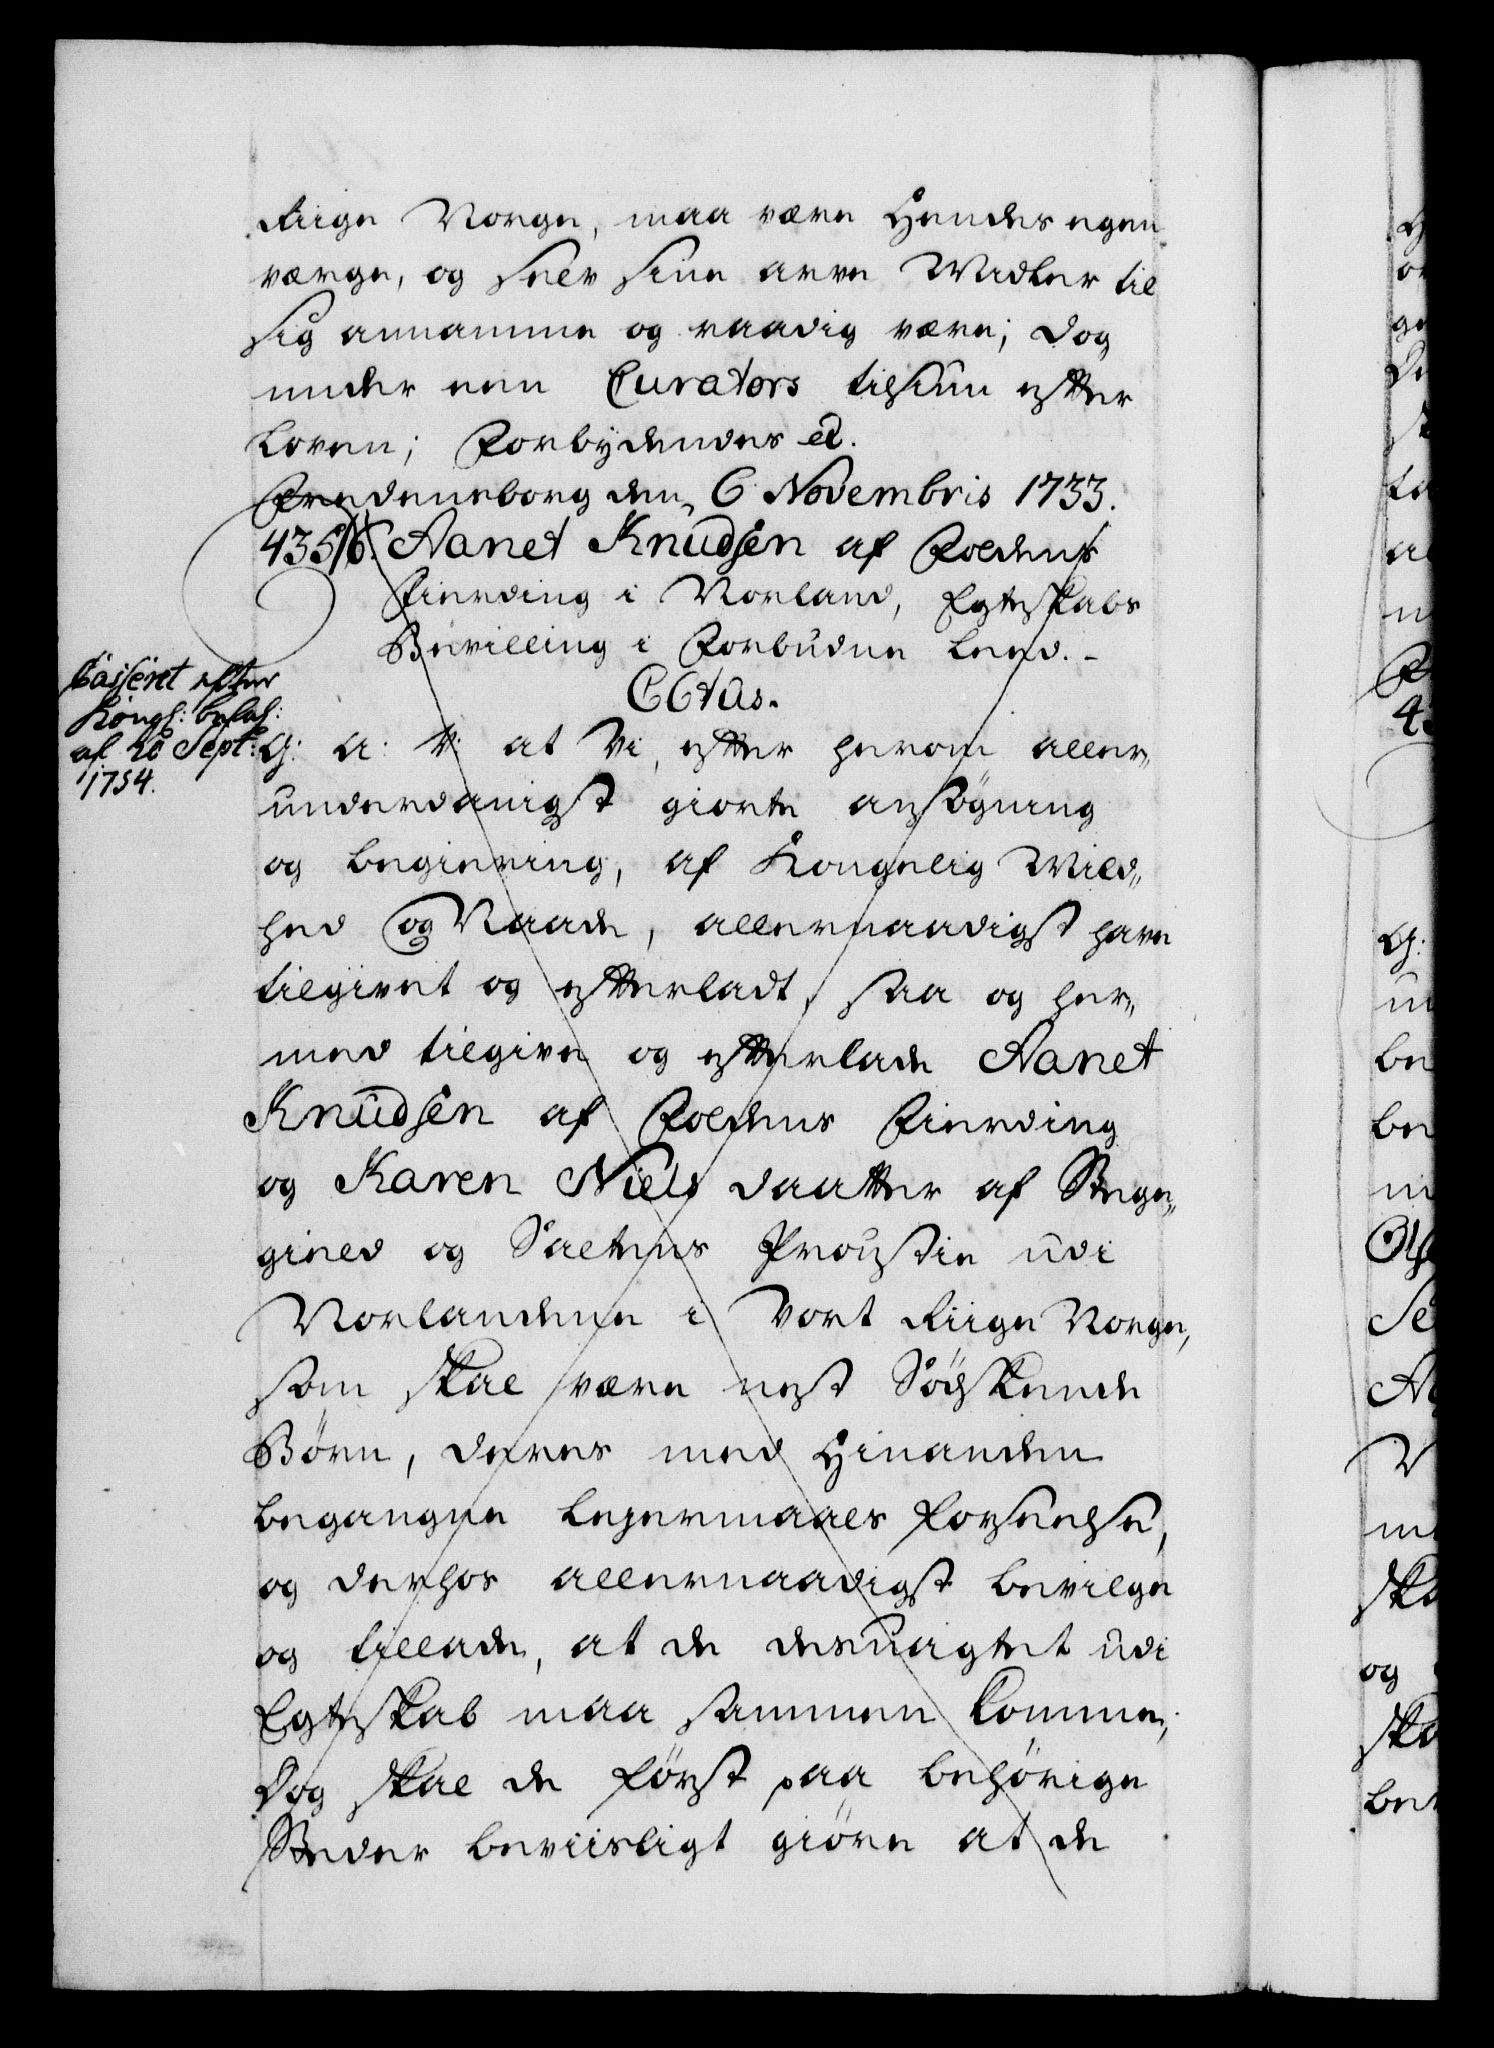 Riige Norge, maa være Hendes egen
værge, og selv sine arve Midler til
sig annamme og raadig være; dog
under een Curators tilsiun efter
Loven; Forbydendes etc.
Fredensborg den 6 Novembris 1733.
435/6. Aanet Knudsen af Foldens
Fierding i Norland, Egteskabs
Bevilling i Forbudne Leed. -
C6tus.
Casseret efter
Kongl: befal:
af 20 Sept:
1754.
G: A: V: at Vi, efter herom aller„
underdanigst giorte ansøgning
og begiering, af Kongelig Mild„
hed og Naade, allernaadigst have
tilgivet og efterladt, saa og her„
med tilgive og efterlade Aanet
Knudsen af Foldens Fierding
og Karen Niels daatter af Stege„
gined og Saltens Proustie udi
Norlandene i Vort Riige Norge,
som skal være nest Södskende
Børn, deres med Hinanden
begangne Lejermaals Forseelse,
og derhos allernaadigst bevilge
og tillade, at de desuagtet udi
Egteskab maa sammen komme;
Dog skal de först paa behörige
Steder beviisligt giöre at de